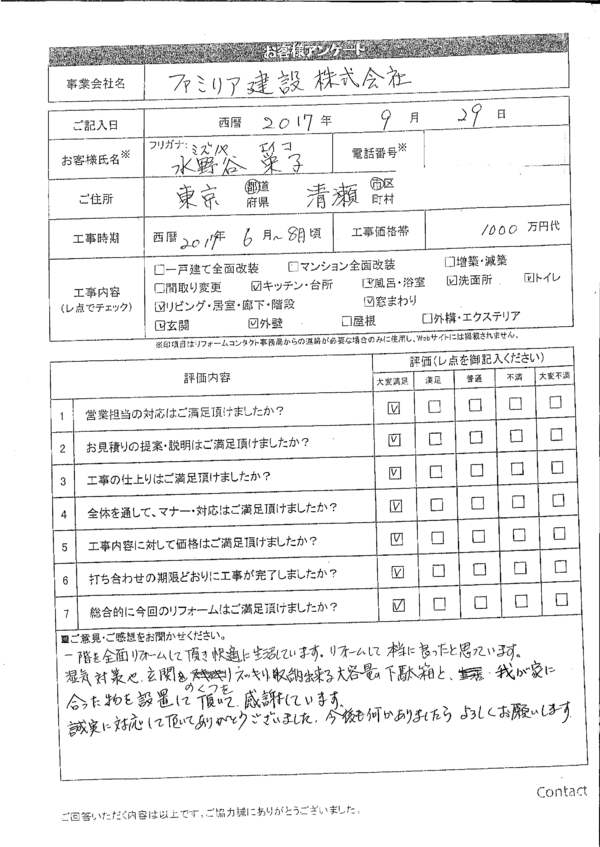 お客様アンケート
事業会社名 ファミリア建設 株式会社
ご記入日 西暦 2017 年 9 月 29 日
フリガナ: ミズノヤ エイコ
お客様氏名※ 水野谷 栄子 電話番号※
ご住所 東京 都道府県 清瀬 市区町村
工事時期 西暦 2017年 6月~8月頃 工事価格帯 1000 万円代
工事内容
(レ点でチェック)
□一戸建て全面改装 □マンション全面改装 □増築・減築
□間取り変更 ☑キッチン・台所 ☑風呂・浴室 ☑洗面所 ☑トイレ
☑リビング・居室・廊下・階段 ☑窓まわり
☑玄関 ☑外壁 □屋根 □外構・エクステリア
※印項目はリフォームコンタクト事務局からの連絡が必要な場合のみに使用し、Webサイトには掲載されません。
評価内容 評価(レ点を御記入ください)
大変満足 満足 普通 不満 大変不満
1 営業担当の対応はご満足頂けましたか? ☑ □ □ □ □
2 お見積りの提案・説明はご満足頂けましたか? ☑ □ □ □ □
3 工事の仕上りはご満足頂けましたか? ☑ □ □ □ □
4 全体を通して、マナー・対応はご満足頂けましたか? ☑ □ □ □ □
5 工事内容に対して価格はご満足頂けましたか? ☑ □ □ □ □
6 打ち合わせの期限どおりに工事が完了しましたか? ☑ □ □ □ □
7 総合的に今回のリフォームはご満足頂けましたか? ☑ □ □ □ □
■ご意見・ご感想をお聞かせください。
一階を全面リフォームして頂き快適に生活しています。リフォームして本当に良かったと思っています。
湿気対策や、玄関をスッキリ収納出来る大容量の下駄箱と、我が家に
合った物を設置して頂いて、感謝しています。
誠実に対応して頂いてありがとうございました。今後も何かありましたら よろしくお願いします。
Contact
ご回答いただく内容は以上です。ご協力誠にありがとうございました。